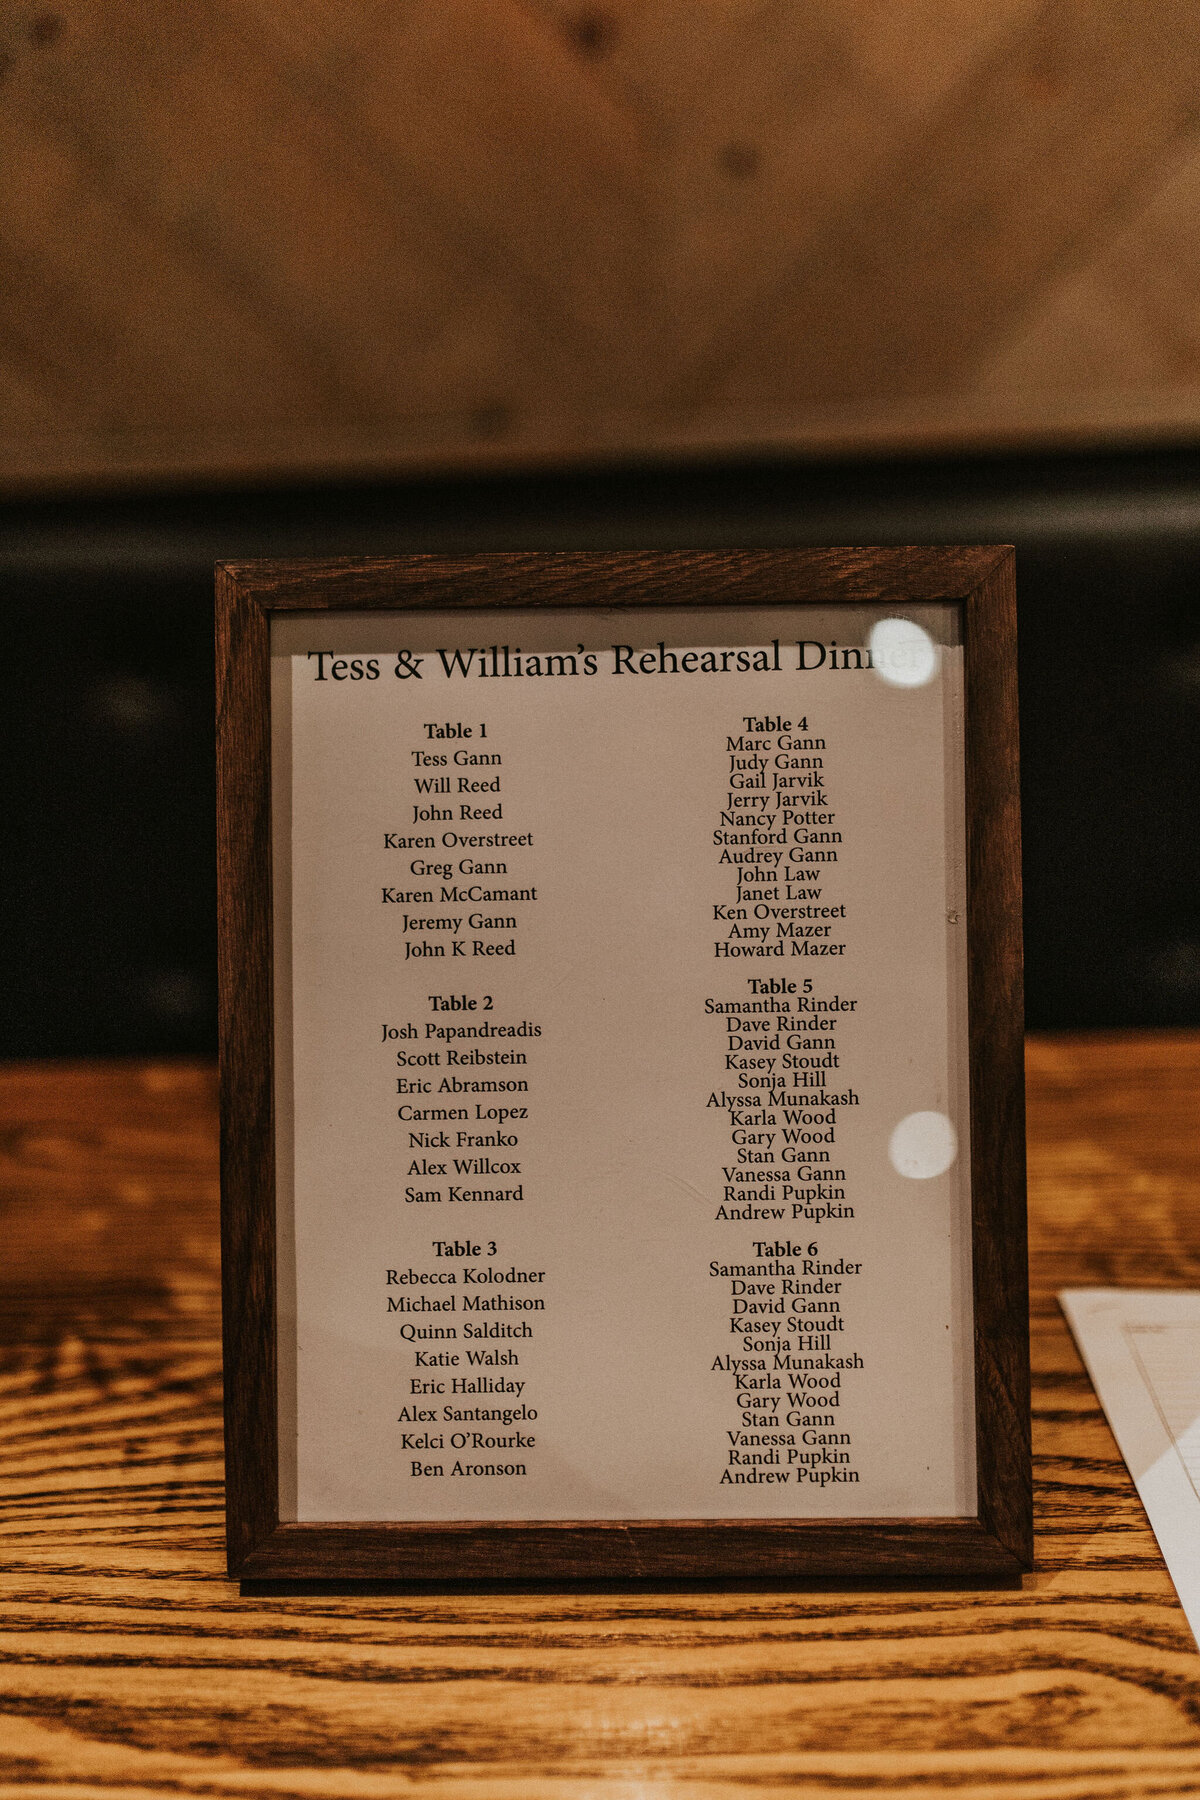 Tess & William's Rehearsal
Table 1
Tess Gann
Will Reed
John Reed
Karen Overstreet
Greg Gann
Karen McCamant
Jeremy Gann
John K Reed
Table 2
Josh Papandreadis
Scott Reibstein
Eric Abramson
Carmen Lopez
Nick Franko
Alex Willcox
Sam Kennard
Table 3
Rebecca Kolodner
Michael Mathison
Quinn Salditch
Katie Walsh
Eric Halliday
Alex Santangelo
Kelci O'Rourke
Ben Aronson
Table 4
Marc Gann
Judy Gann
Gail Jarvik
Jerry Jarvik
Nancy Potter
Stanford Gann
Audrey Gann
John Law
Janet Law
Ken Overstreet
Amy Mazer
Howard Mazer
Table 5
Samantha Rinder
Dave Rinder
David Gann
Kasey Stoudt
Sonja Hill
Alyssa Munakash
Karla Wood
Gary Wood
Stan Gann
Vanessa Gann
Randi Pupkin
Andrew Pupkin
Table 6
Samantha Rinder
Dave Rinder
David Gann
Kasey Stoudt
Sonja Hill
Alyssa Munakash
Karla Wood
Gary Wood
Stan Gann
Vanessa Gann
Randi Pupkin
Andrew Pupkin